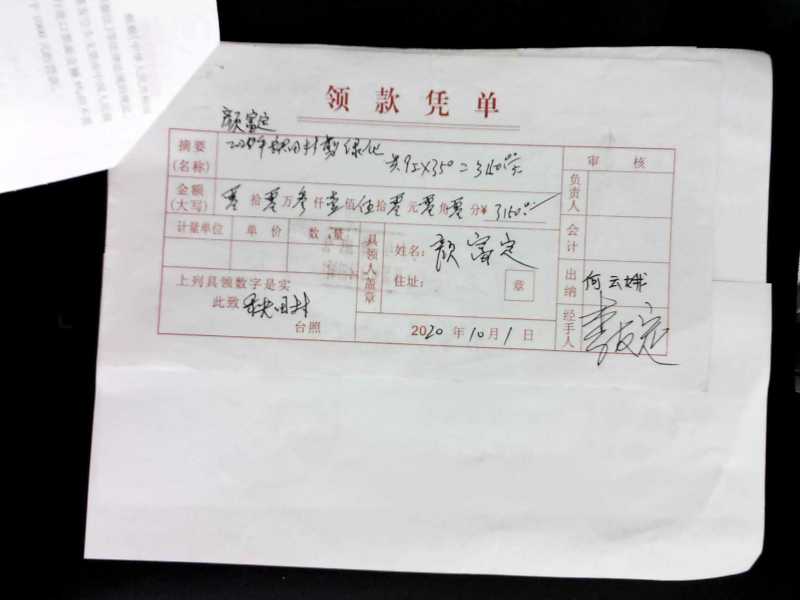 领款凭单
颜富定
摘要(名称) 2020年秧田村剪绿化 共9工×350=3150元
审核
金额(大写) 零拾零万叁仟壹佰伍拾零元零角零分¥3150
负责人
会计
计量单位 单价 数量
具领人盖章 姓名: 颜富定
住址: 章
上列具领数字是实
此致 秧田村
台照
2020年10月1日
出纳 何云娥
经手人